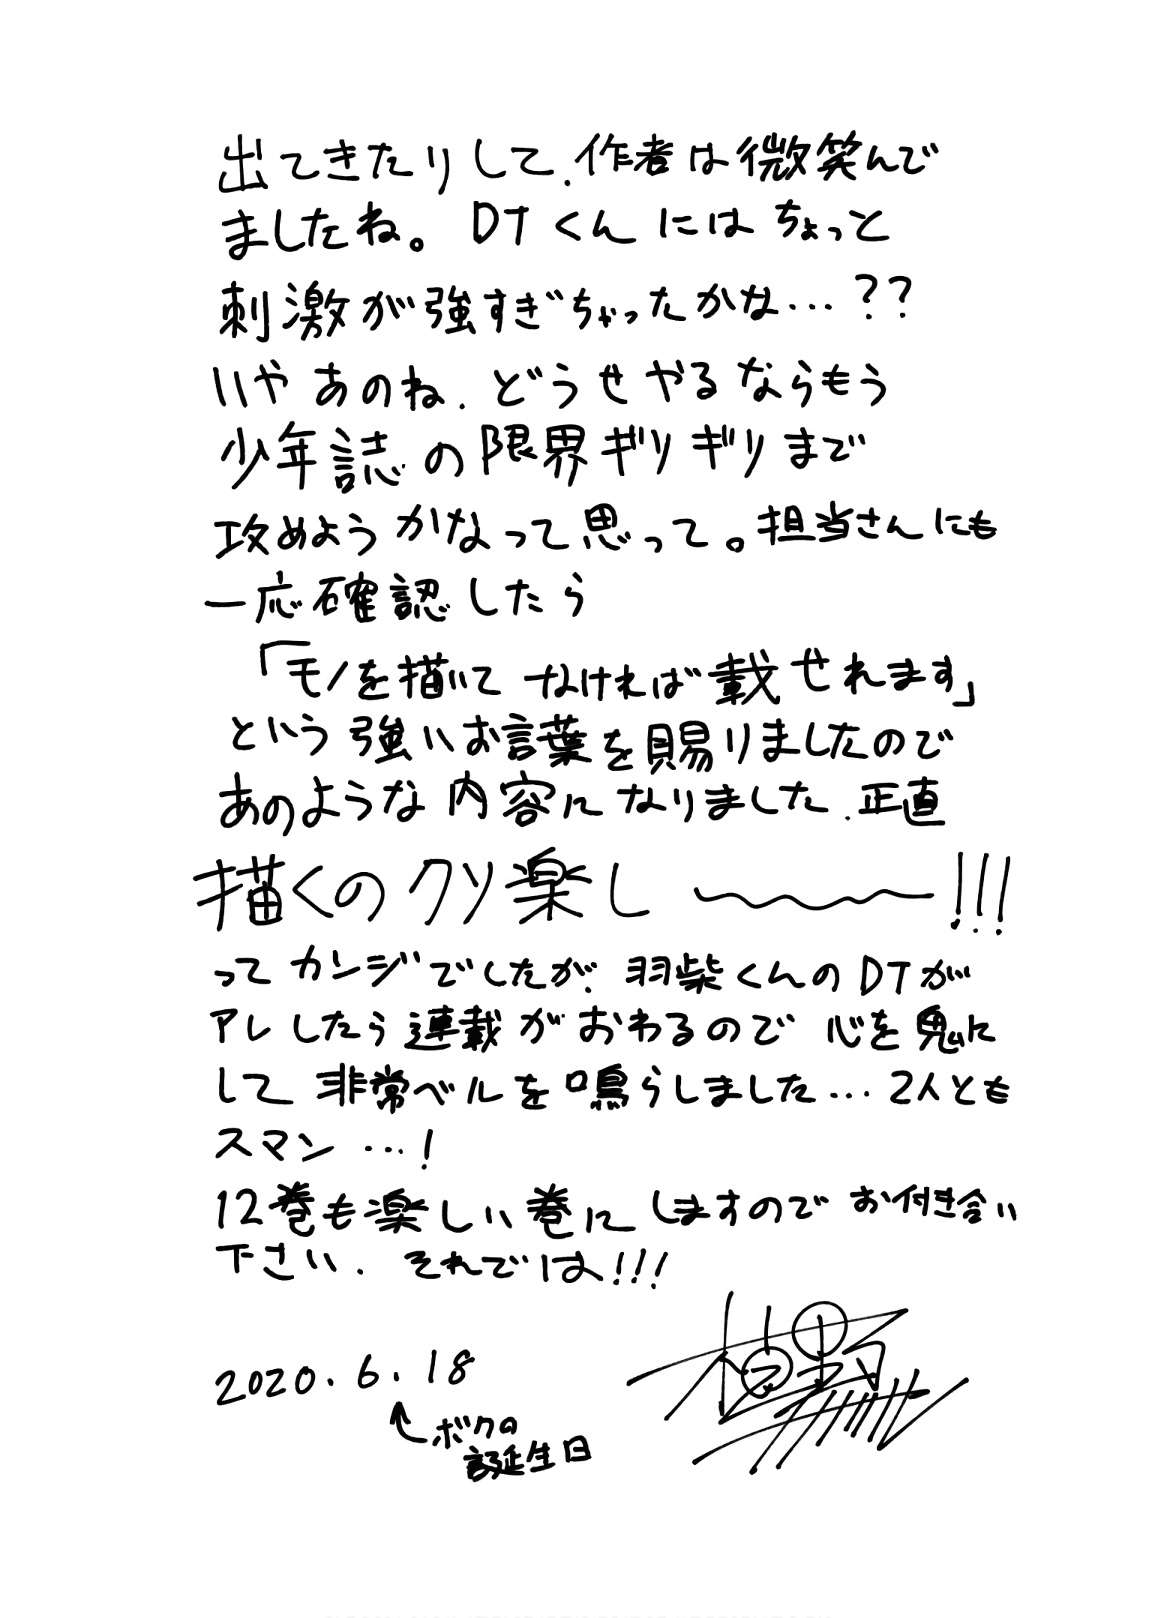 出てきたりして、作者は微笑んで
ましたね。DTくんにはちょっと
刺激が強すぎちゃったかな…??
いやあのね、どうせやるならもう
少年誌の限界ギリギリまで
攻めようかなって思って。担当さんにも
一応確認したら
「モノを描いてなければ載せれます」
という強いお言葉を賜りましたので
あのような内容になりました、正直
描くのクソ楽し〜〜〜!!!
ってカンジでしたが、羽柴くんのDTが
アレしたら連載がおわるので心を鬼に
して非常ベルを鳴らしました…2人とも
スマン…!
12巻も楽しい巻にしますのでお付き合い
下さい、それでは!!!
2020.6.18
ボクの
誕生日